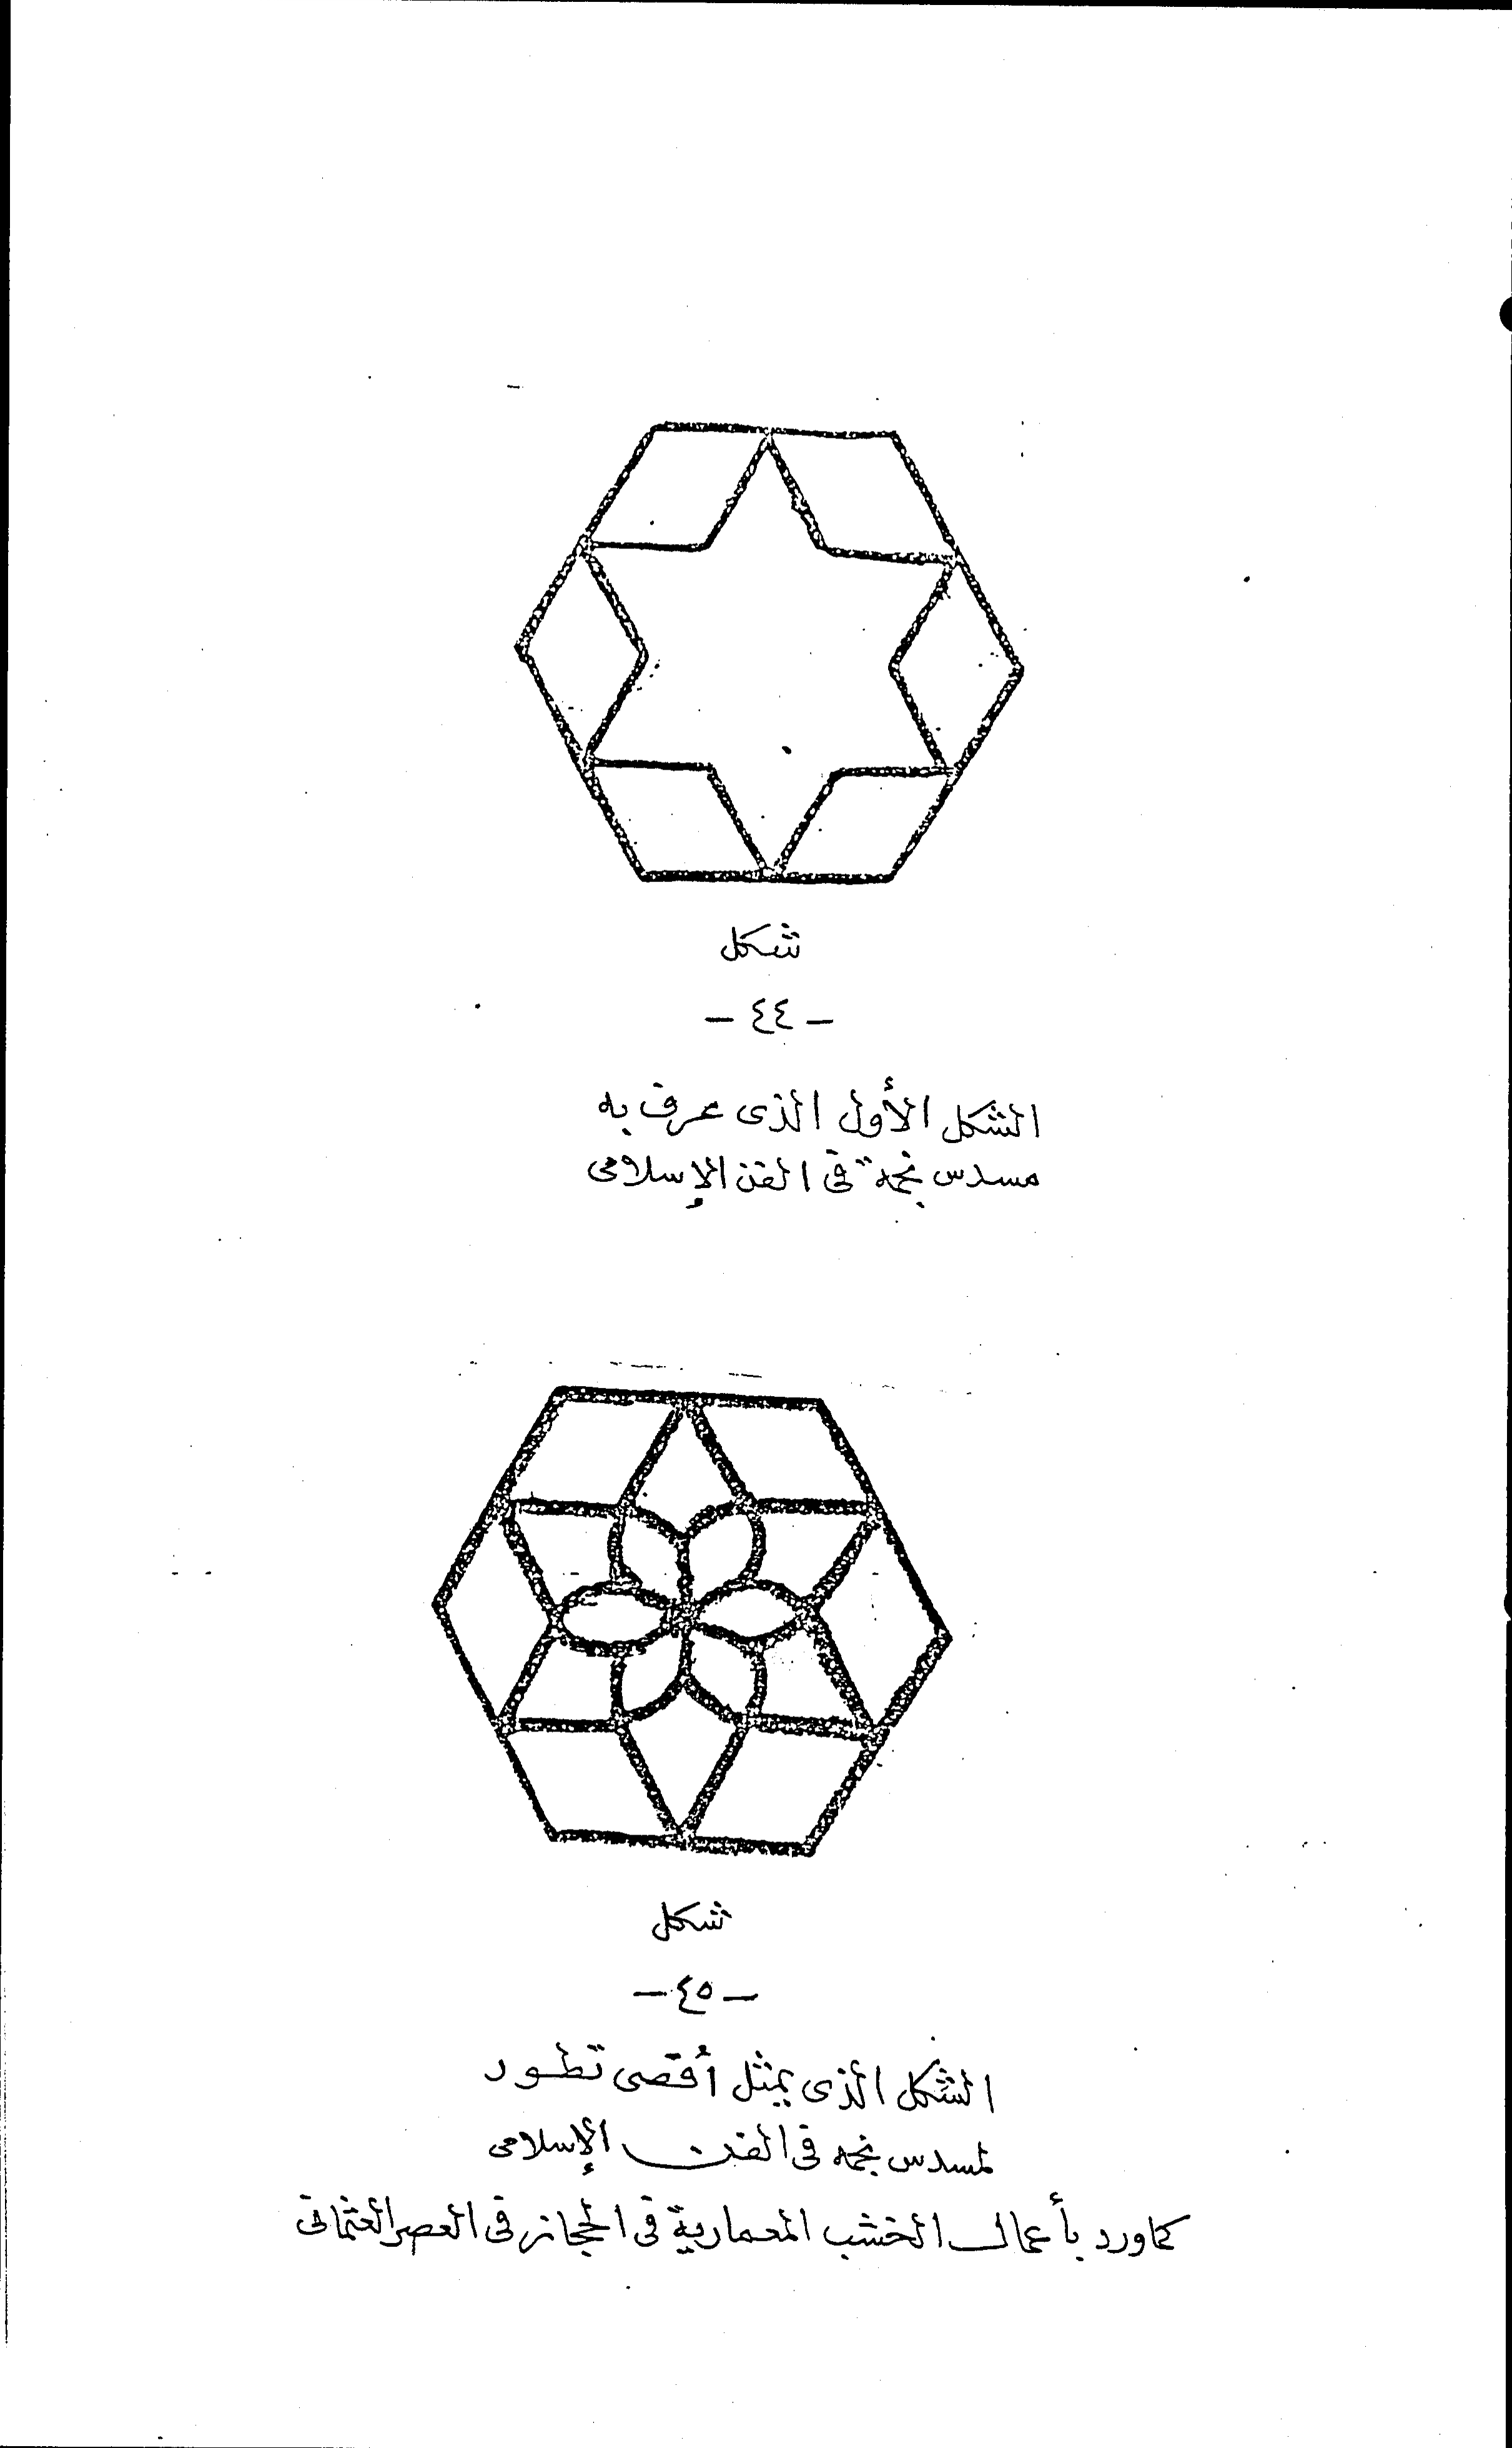 شكل
- ٤٤ -
الشكل الأول الذى عرف به
مسدس نجمة فى الفن الإسلامى
شكل
- ٤٥ -
الشكل الذى يمثل أقصى تطور
لمسدس نجمه فى الفن الإسلامى
كما ورد بأعمال الخشب المعمارية فى الحجاز فى العصر العثمانى